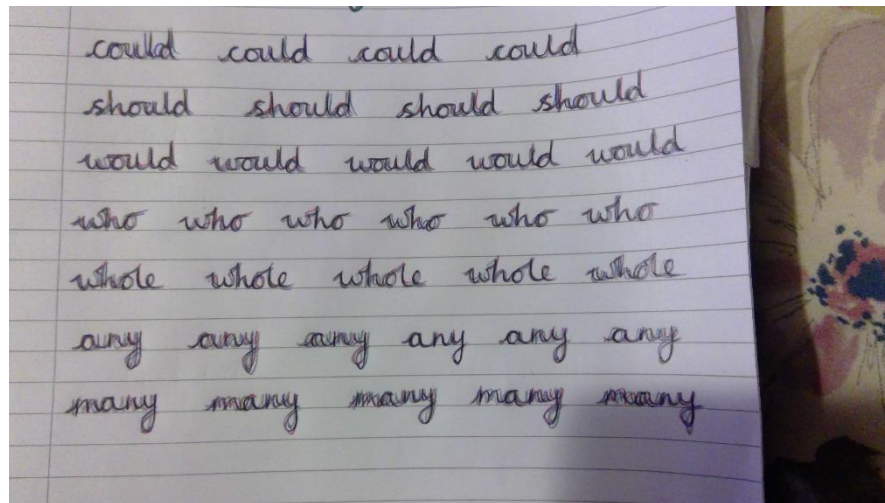 could could could could
should should should should
would would would would would
who who who who who who
whole whole whole whole whole
any any any any any any
many many many many many